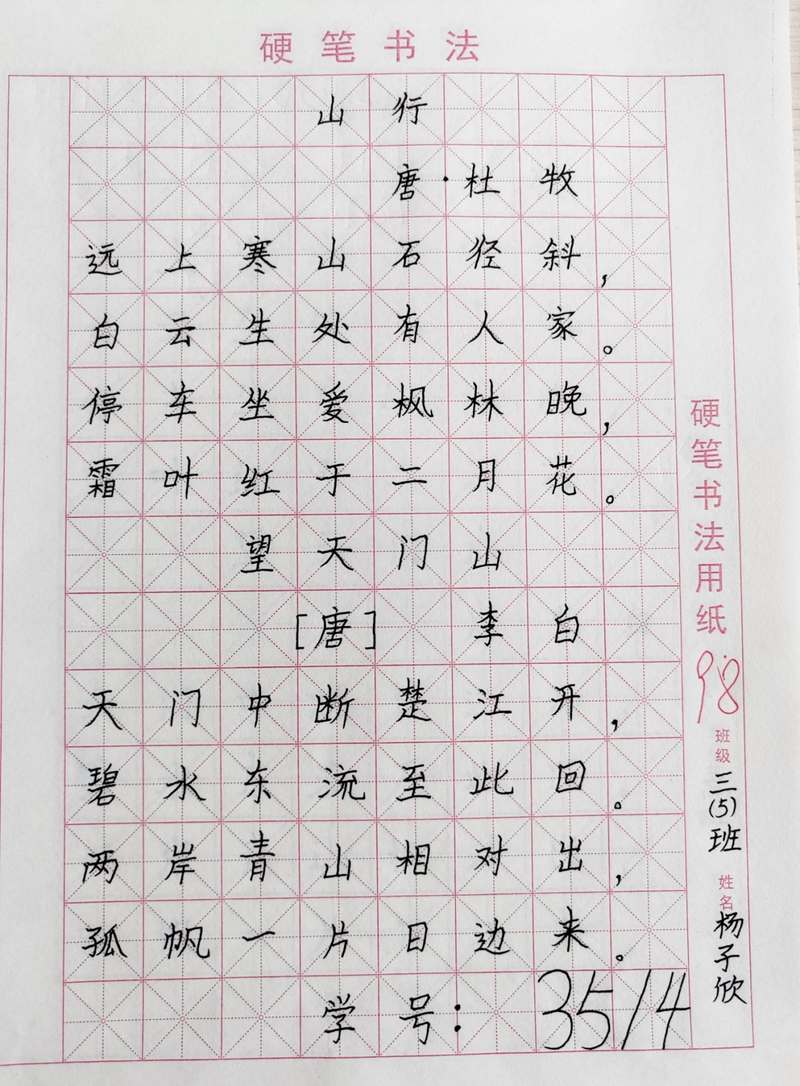 硬笔书法
山行
唐·杜牧
远上寒山石径斜，
白云生处有人家。
停车坐爱枫林晚，
霜叶红于二月花。
望天门山
[唐] 李白
天门中断楚江开，
碧水东流至此回。
两岸青山相对出，
孤帆一片日边来。
学号：3514
硬笔书法用纸
98
班级 三(5)班
姓名 杨子欣